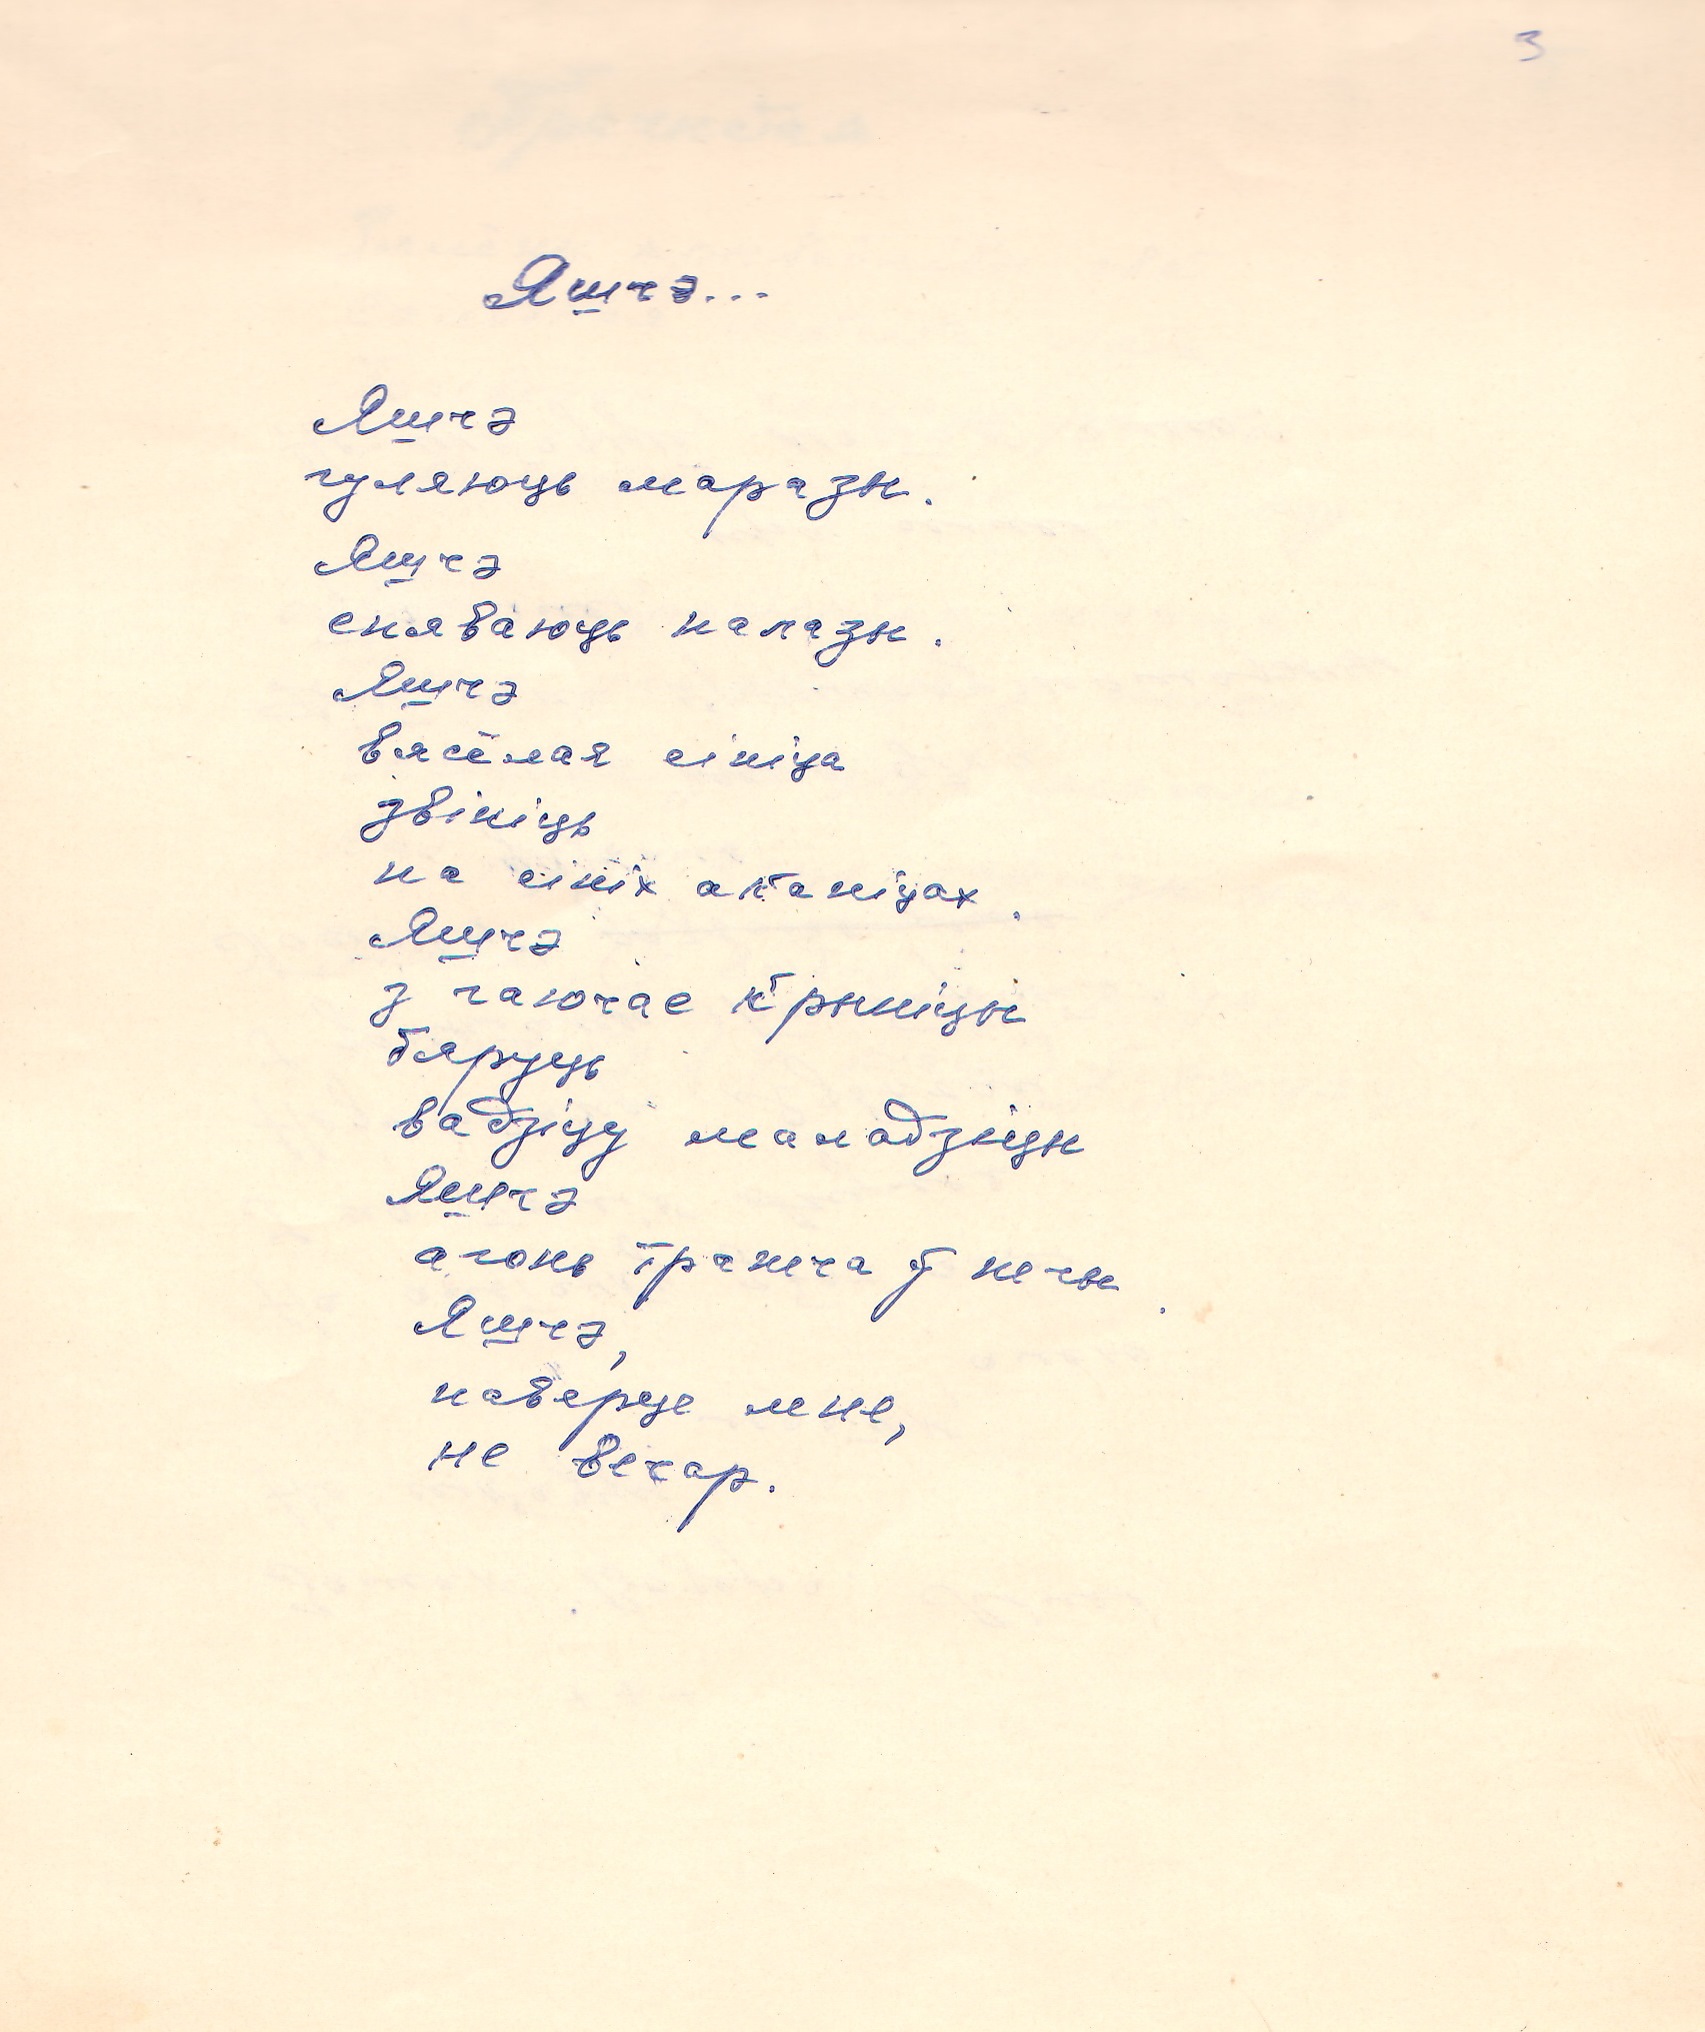 3
Яшчэ...
Яшчэ
гуляюць маразы.
Яшчэ
спяваюць палазы.
Яшчэ
вясёлая сініца
звініць
на сініх аканіцах.
Яшчэ
з гаючае крыніцы
бяруць
вадзіцу маладзіцы
Яшчэ
агонь трапеча ў печы.
Яшчэ,
паверце мне,
не вечар.